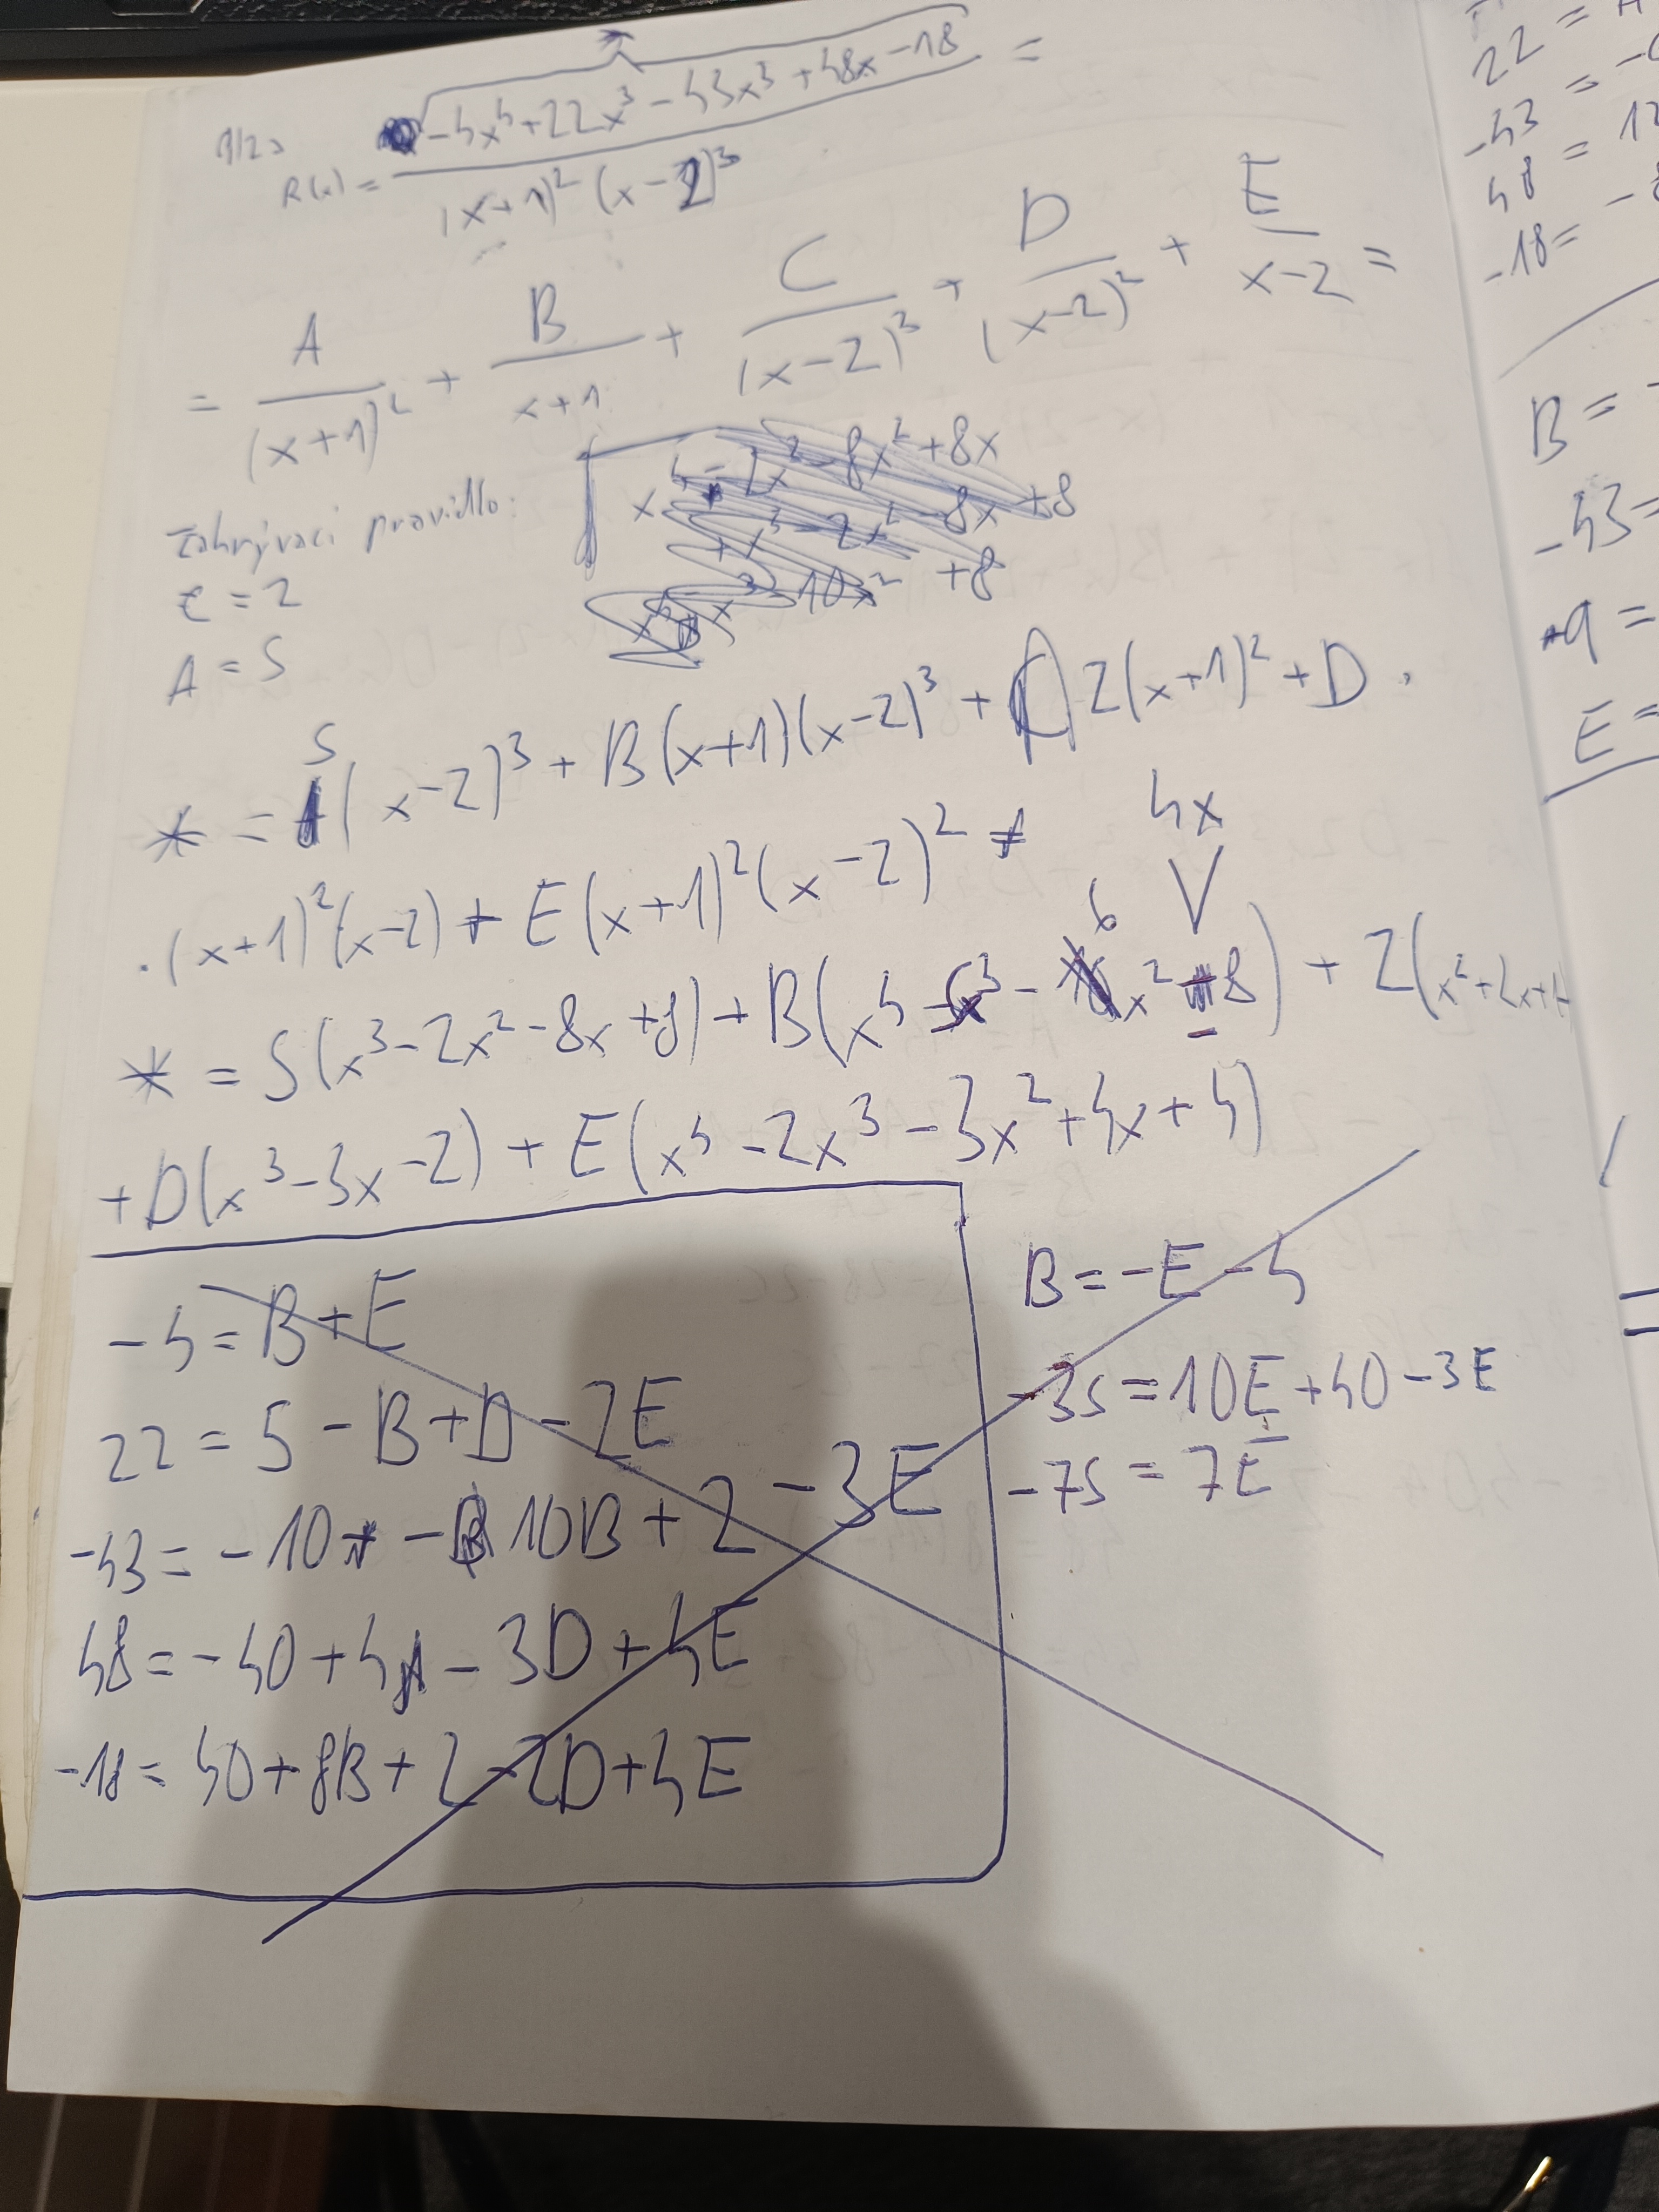 R(x) = (-4x⁴+22x³-43x³+48x-18) / ((x+1)²(x-2)³) =
= A/(x+1)² + B/(x+1) + C/(x-2)³ + D/(x-2)² + E/(x-2) =
Zakrývací pravidlo:
C = 2
A = 5
* = 5(x-2)³ + B(x+1)(x-2)³ + 2(x+1)² + D ·
· (x+1)²(x-2) + E(x+1)²(x-2)²
4x
6
* = 5(x³-2x²-8x+8) + B(x⁴-5x³- x²-8) + 2(x²+2x+1)
+D(x³-3x-2) + E(x⁴-2x³-3x²+4x+4)
-4 = B+E
22 = 5 - B + D - 2E
-43 = -10 - 10B + 2 - 3E
48 = -40 + 4 - 3D + 4E
-18 = 40 + 8B + 2 - 2D + 4E
B = -E - 4
-35 = 10E + 40 - 3E
-75 = 7E
22 =
-43 =
48 = 12
-18 = -8
B = -
-43 =
-9 =
E =